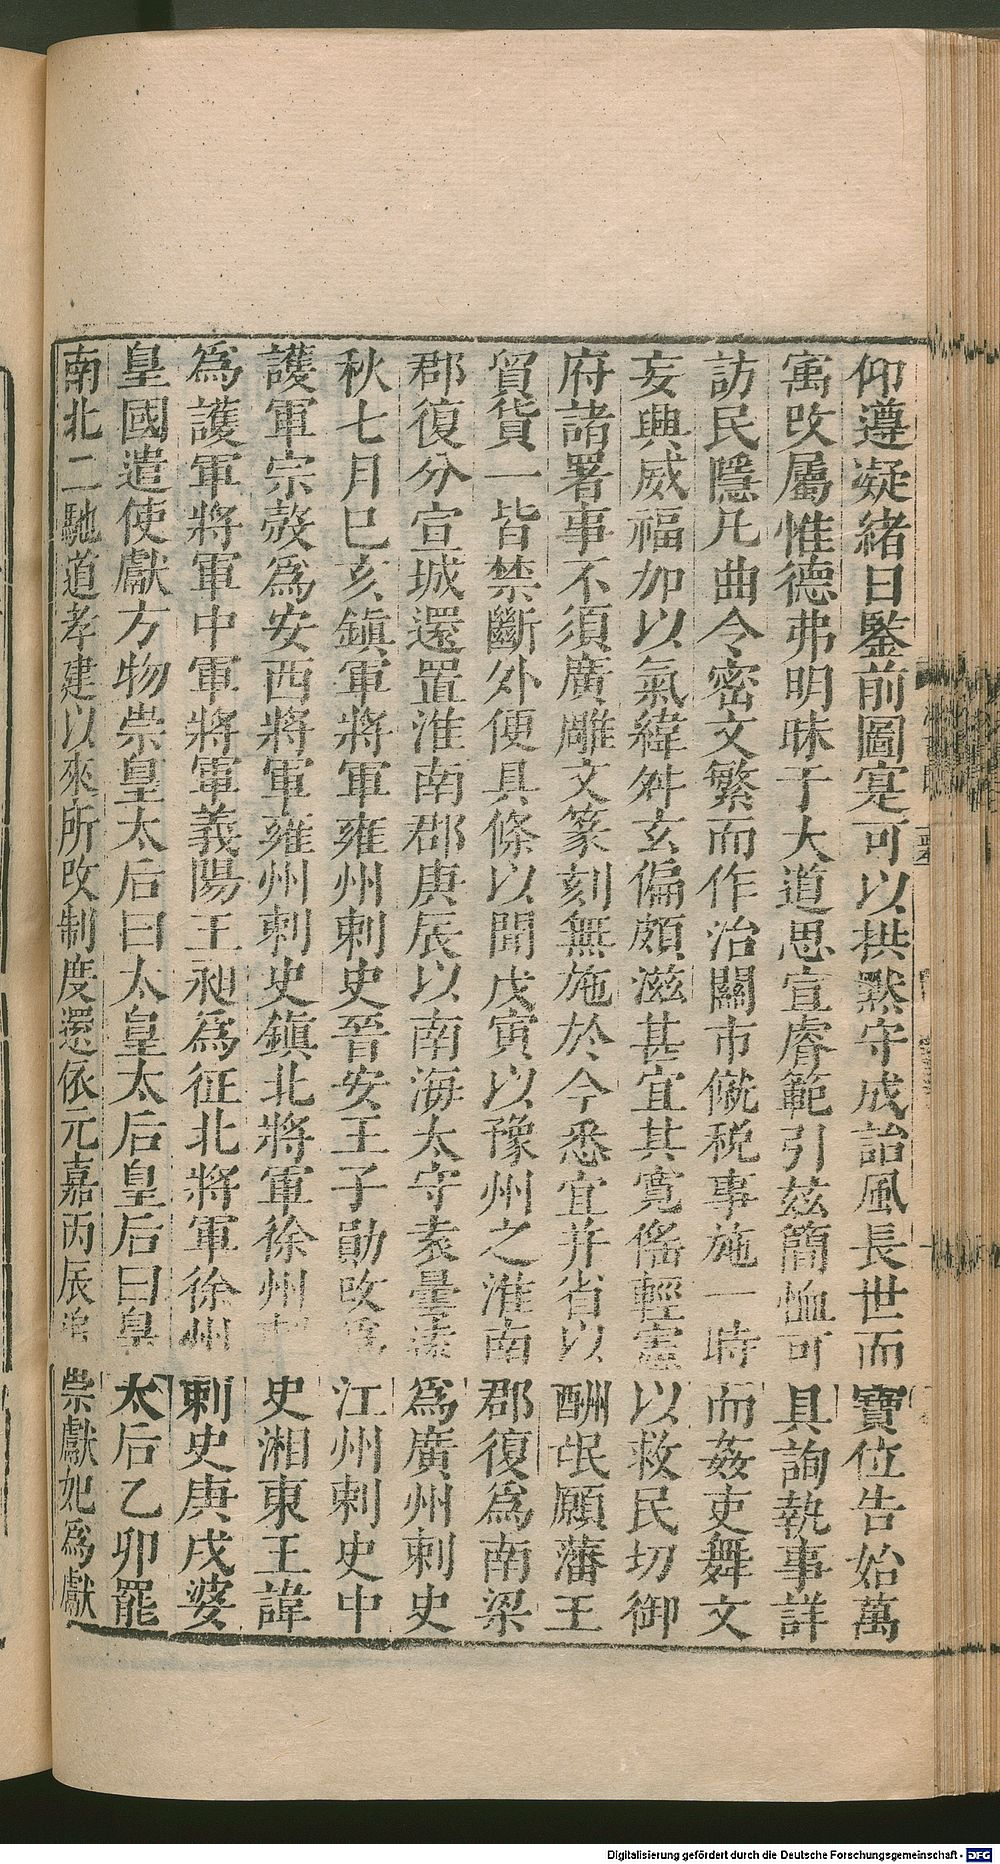 仰遵凝緒日鑒前圖寔可以拱默守成詒風長世而寶位告始萬
寓改屬惟德弗明昧于大道思宣睿範引茲簡恤可具詢執事詳
訪民隱凡曲令密文繁而作治關市僦税事施一時而姦吏舞文
妄興威福加以氣緯舛玄偏頗滋甚宜其寛徭輕憲以救民切御
府諸署事不須廣雕文篆刻無施於今悉宜并省以酬氓願藩王
貿貨一皆禁斷外便具條以聞戊寅以豫州之淮南郡復爲南梁
郡復分宣城還置淮南郡庚辰以南海太守袁曇遠爲廣州刺史
秋七月巳亥鎮軍將軍雍州刺史晉安王子勛改爲江州刺史中
護軍宗愨爲安西將軍雍州刺史鎮北將軍徐州刺史湘東王諱
爲護軍將軍中軍將軍義陽王昶爲征北將軍徐州刺史庚戌婆
皇國遣使獻方物崇皇太后曰太皇太后皇后曰皇太后乙卯罷
南北二馳道孝建以來所改制度還依元嘉丙辰崇獻妃爲獻
Digitalisierung gefördert durch die Deutsche Forschungsgemeinschaft - DFG